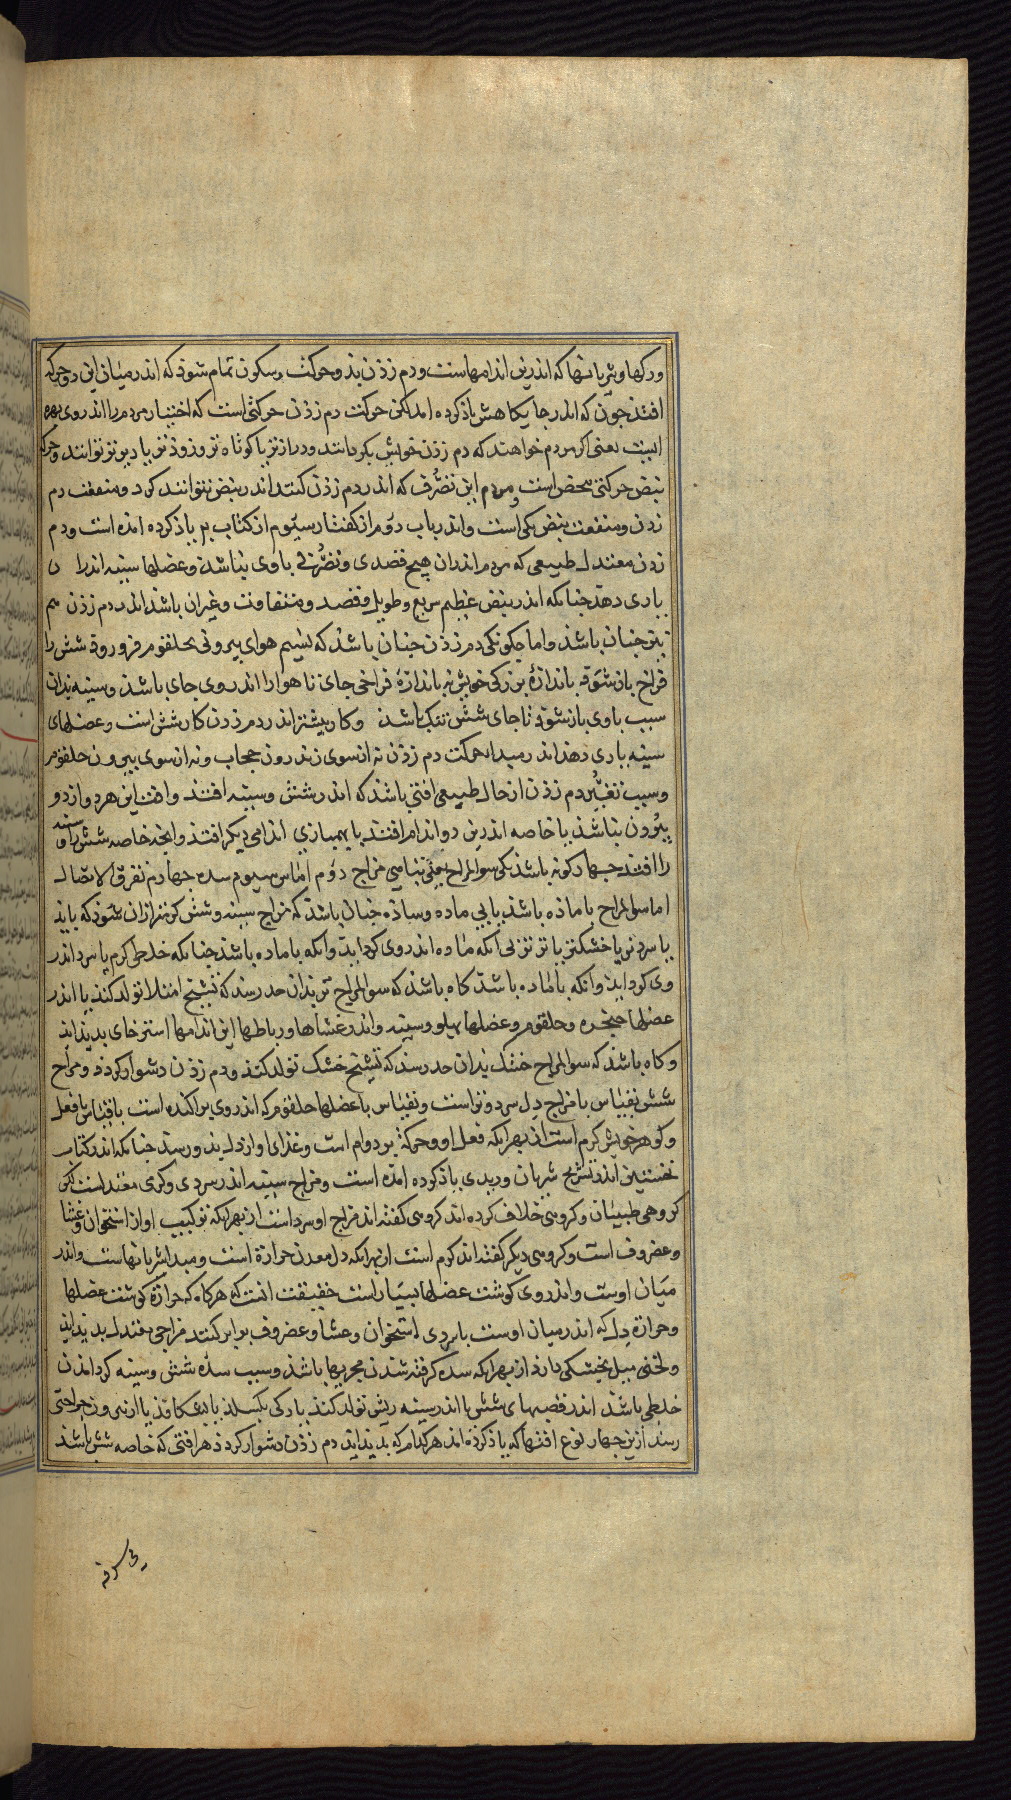 ورکها وشریانها که اندرین اندامهاست ودم زذن بذو حرکت وسکون تمام شوذ که اندر میان این دو حرکه
افتذ جون که اندر جایکاهش یاذ کرده امد لکن حرکت دم زذن حرکتی است که اختیار مردم را اندر وی بهره
است یعنی اکر مردم خواهند که دم زذن خویش بکردانند ودرازتر یا کوتاه تر وزوذتر یا دیرتر توانند وحرکه
نبض حرکتی محض است ومردم این تصُرف که اندر دم زذن کنند اندر نبض نتوانند کرد ومنفعت دم
زدن ومنفعت نبض یکی است واندر باب دوّم از کفتار سیّوم از کتاب یاذ کرده امذه است ودم
زدن معتدل طبیعی که مردم اندران هیچ قصدی وتصُرفی باوی نباشذ وعضلها سینه اندرا ن
یاری دهذ جنانکه اندر نبض عظیم سریع وطویل وقصد ومتفاوت وغیران باشذ اندر دم زذن هم
برین جنان باشذ واما جکونکی دم زذن جنان باشذ که نسیم هوای بیرونی بحلقوم فرو روذ شش را
فراخ باز شوذ باندازهٔ بزرکی خویش نه باندازهٔ فراخی جای تا هوا را اندر وی جای باشذ وسینه بذان
سبب باوی باز شوذ تا جای شش تنک نباشذ وکار بیشتر اندر دم زدن کار شش است وعضلهای
سینه یاری دهذ اندر میدا حرکت دم زذن نه از سوی زندرون حجاب ونه از سوی بیرون حلقوم
وسبب تغیُّر دم زذن از حال طبیعی افتی باشذ که اندر شش وسینه افتذ وافت این هردو از دو
بیُرون نباشذ یا خاصه اندرین دو اندام افتذ یا بهمبازی اندامی دیکر افتذ وانچه خاصه شش را وسینه
را افتذ جهار کونه باشذ یکی سوالمزاج یعنی بتباهی مزاج دوّم اماس سیوم سده جهارم تفرق الاتصال
اما سوالمزاج با ماذه باشذ یا بی ماده وساذه جنان باشذ که مزاج سینه وشش کرمتر ازان شوذ که بایذ
یا سردتر یا خشکتر یا تر تر بی انکه ماده اندر وی کرد ایذ وانکه با ماده باشذ جنانکه خلطی کرم یا سرد اندر
وی کرد ایذ وانکه با ماده باشذ کاه باشذ که سوالمزاج تر بذان حد رسذ که تشنج امتلا تولد کنذ یا اندر
عضلها حنجره وحلقوم وعضلها پهلو وسینه واندر غشاها ورباطها این اندامها استرخای پدید ایذ
وکاه باشذ که سوالمزاج خشک بذان حد رسذ که تشنج خشک تولد کنذ ودم زذن دشوار کردد ومزاج
شش بقیاس با مزاج دل سرد وتر است وبقیاس با عضلها حلقوم که اندر وی پراکنده است یا قیاس با فعل
وکوهر خویش کرم است از بهر انکه فعل او وحرکهٔ بر دوام است وغذای او از دل بذو رسذ جنانکه اندر کتاب
نخستین اندر تشریح شریان وریدی یاذ کرده امذه است ومزاج سینه اندر سردی وکرمی معتدلست لکن
کروهی طبیبان وکروهی خلاف کرده اند کروهی کفته اند مزاج او سرد است از بهر انکه ترکیب او از استخوان وغشا
وغضروف است وکروهی دیکر کفته اند کرم است از بهر انکه دل معدن حرارة است ومبدا شریانهاست واندر
میان اوست واندر وی کوشت عضلها بسیار است حقیقت انست که هرکاه که حرارة کوشت عضلها
وحرارة دل که اندر میان اوست با سردی استخوان وغشا وغضروف برابر کنند مزاجی معتدل پدید اید
ولختی میل بخشکی دارذ از بهر انکه سده کرفته شدن مجریها باشذ وسبب سدّه شش وسینه کرد امذن
خلطی باشذ اندر قصبهای شش یا اندر سینه ریش تولد کنذ یا رکی بکسلذ یا بشکافذ یا از بیرون جراحتی
رسذ ازین جهار نوع افتها که یاذ کرذه اند هر کدام که پدید ایذ دم زذن دشوار کرذذ هر افتی که خاصه شش باشذ